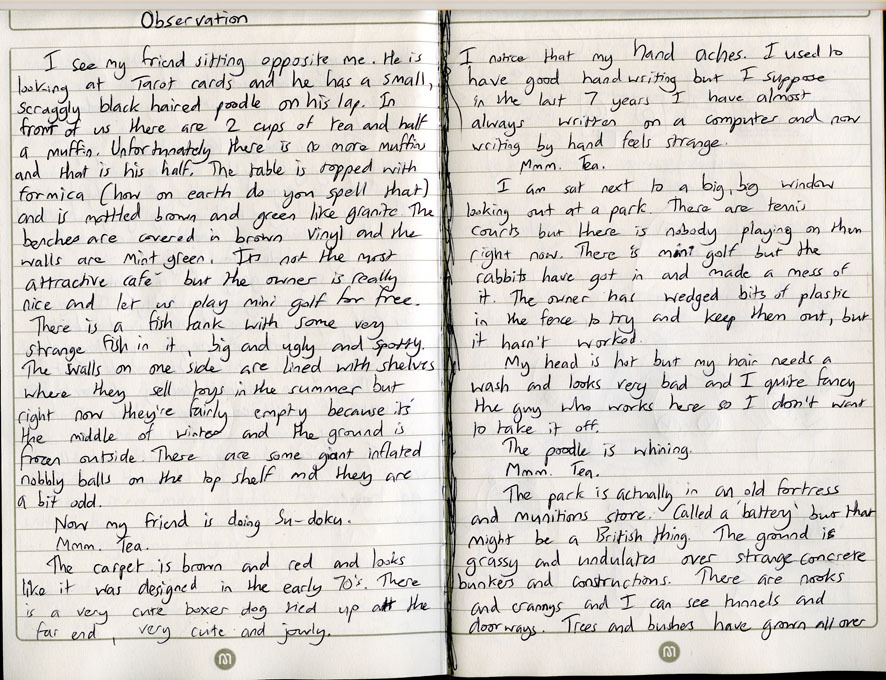 Observation
I see my friend sitting opposite me. He is
looking at Tarot cards and he has a small,
scraggly black haired poodle on his lap. In
front of us there are 2 cups of tea and half
a muffin. Unfortunately there is no more muffin
and that is his half. The table is topped with
formica (how on earth do you spell that)
and is mottled brown and green like granite. The
benches are covered in brown vinyl and the
walls are mint green. Its not the most
attractive café but the owner is really
nice and let us play mini golf for free.
There is a fish tank with some very
strange fish in it, big and ugly and spotty.
The walls on one side are lined with shelves
where they sell toys in the summer but
right now they're fairly empty because its
the middle of winter and the ground is
frozen outside. There are some giant inflated
nobbly balls on the top shelf and they are
a bit odd.
Now my friend is doing Su-doku.
Mmm. Tea.
The carpet is brown and red and looks
like it was designed in the early 70's. There
is a very cute boxer dog tied up at the
far end, very cute and jowly.
I notice that my hand aches. I used to
have good handwriting but I suppose
in the last 7 years I have almost
always written on a computer and now
writing by hand feels strange.
Mmm. Tea.
I am sat next to a big, big window
looking out at a park. There are tennis
courts but there is nobody playing on them
right now. There is mini golf but the
rabbits have got in and made a mess of
it. The owner has wedged bits of plastic
in the fence to try and keep them out, but
it hasn't worked.
My head is hot but my hair needs a
wash and looks very bad and I quite fancy
the guy who works here so I don't want
to take it off.
The poodle is whining.
Mmm. Tea.
The park is actually in an old fortress
and munitions store. Called a 'battery' but that
might be a British thing. The ground is
grassy and undulates over strange concrete
bunkers and constructions. There are nooks
and crannys and I can see tunnels and
doorways. Trees and bushes have grown all over